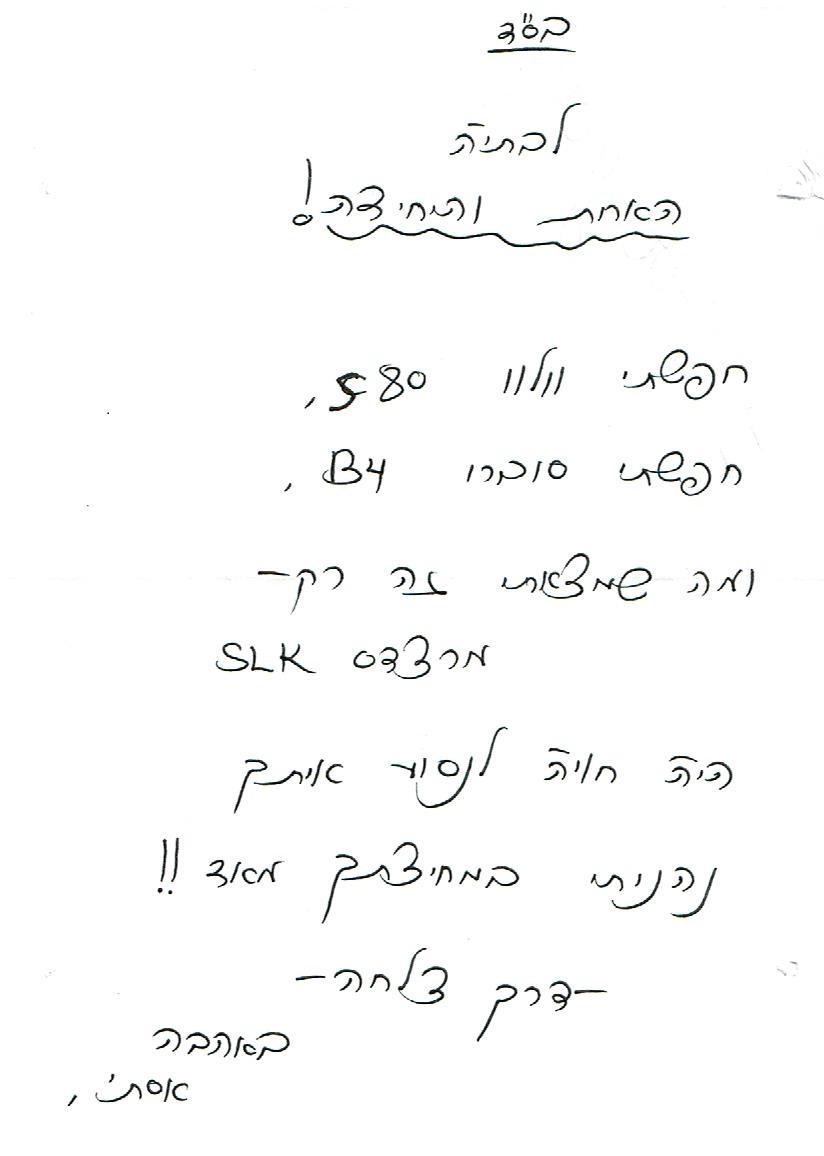 בס"ד
לבתיה
האחת והיחידה!
חפשתי וולוו S80,
חפשתי סוברו B4,
ומה שמצאתי זה רק–
מרצדס SLK
היה חויה לנסוע איתך
נהניתי במחיצתך מאוד!!
–דרך צלחה–
באהבה
אסתי,